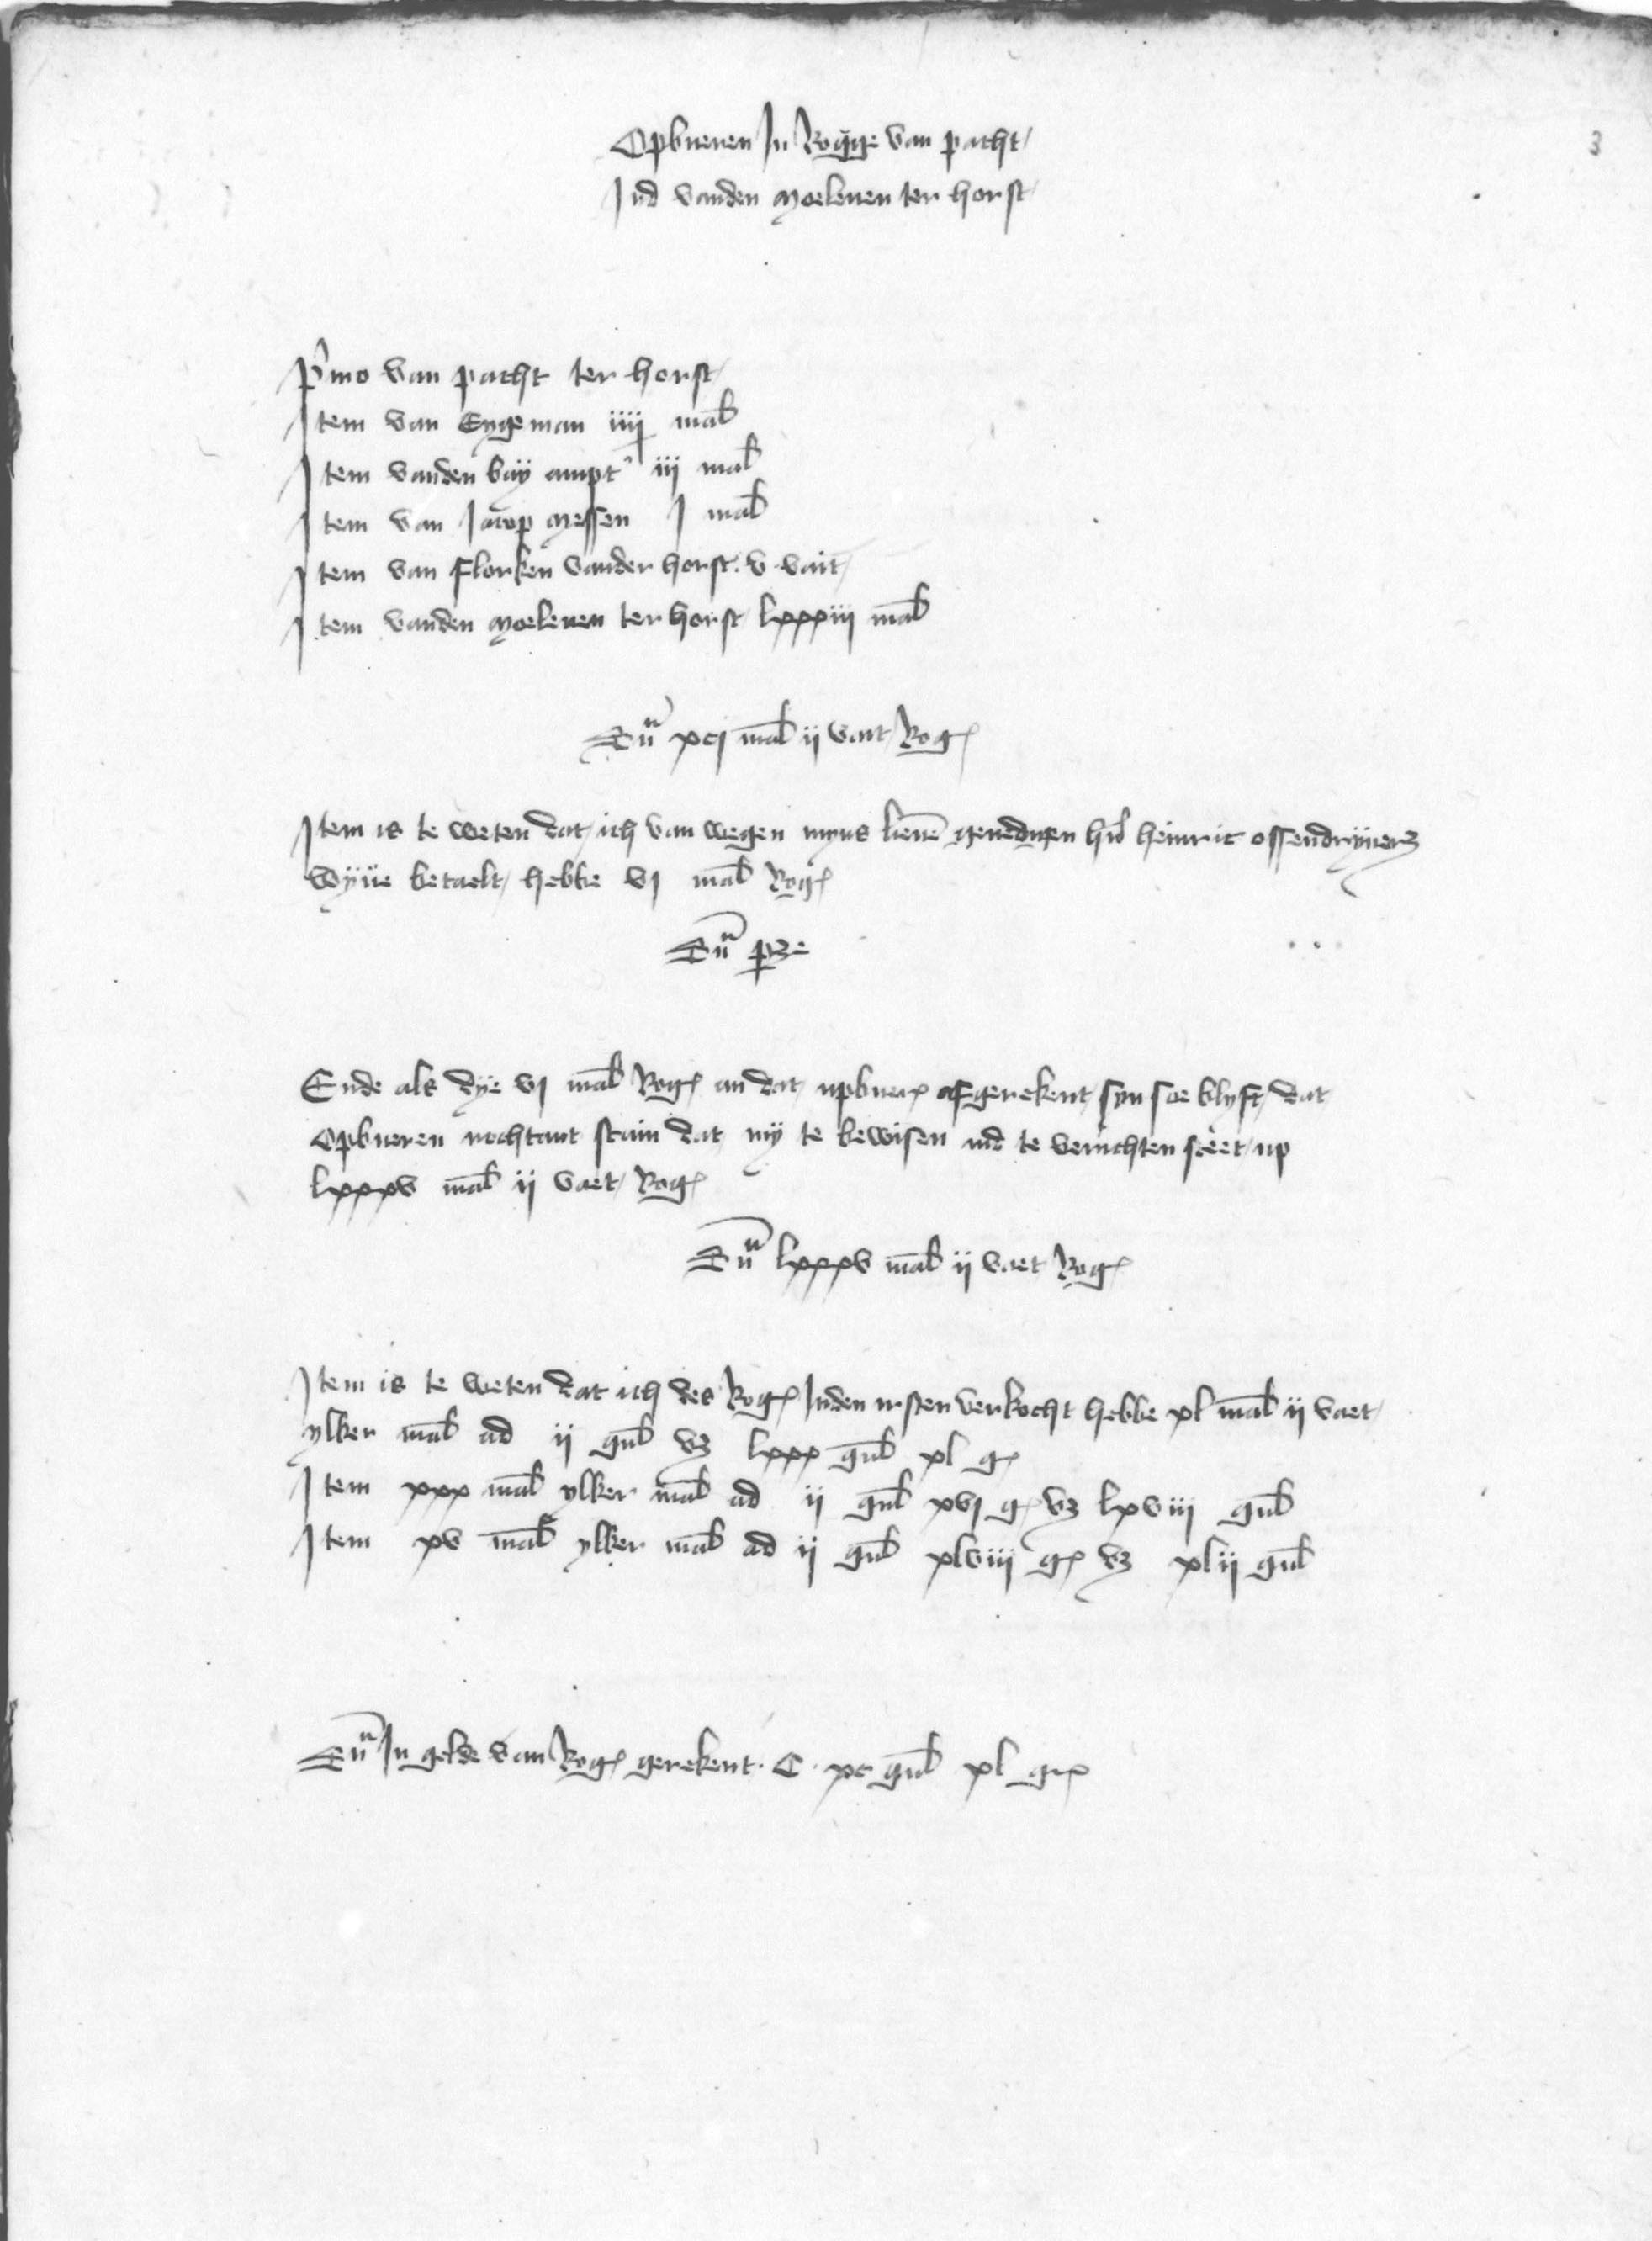 3
Opbueren In Rogge van pacht
Ind vanden Moelenen ter horst
Primo van pacht ter horst
Item van Engeman iiij mal
Item vanden bay ampt iij mal
Item van Jacop Messen I mal
Item van Florken vander horst v vait
Item vanden Moelenen ter horst lxxxiij mal
Sum xcj mal ij vait Rog
Item is te weten dat ich van wegen myns lieuen geneden hern heinric ossendryuers
wyue betaelt hebbe vj mal Rog
Sum
Ende als dye vj mal Rog an dat upbuer afgerekent syn soe blyft dat
Opbueren nochtant stain dat my te bewisen ind te verrichten steet up
lxxxv mal ij vaet Rog
Sum lxxxv mal ij vaet Rog
Item is te weten dat ich des Rog Inden irsten verkocht hebbe xl mal ij vaet
ylker mal ad ij gul vz lxxx gul xl g
Item xxx mal ylker mal ad ij gul xvj g vz lxviij gul
Item xv mal ylker mal ad ij gul xlviij g vz xlij gul
Sum In gelde van Rog gerekent C xc gul xl gr